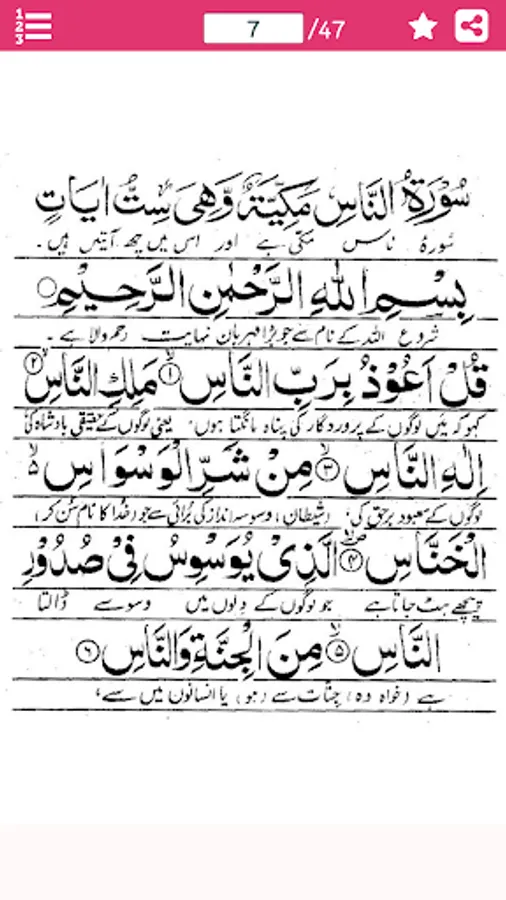 1 2 3
7 /47
سُوْرَةُ النَّاسِ مَكِّيَّةٌ وَّهِيَ سِتُّ اٰيَاتٍ
سُورۂ ناس مکّی ہے اور اس میں چھ آیتیں ہیں۔
بِسْمِ اللّٰهِ الرَّحْمٰنِ الرَّحِيْمِ ○
شروع اللہ کے نام سے جو بڑا مہربان نہایت رحم والا ہے۔
قُلْ اَعُوْذُ بِرَبِّ النَّاسِ ۙ﴿۱﴾ مَلِكِ النَّاسِ ۙ﴿۲﴾
کہو کہ میں لوگوں کے پروردگار کی پناہ مانگتا ہوں، یعنی لوگوں کے حقیقی بادشاہ کی
اِلٰهِ النَّاسِ ۙ﴿۳﴾ مِنْ شَرِّ الْوَسْوَاسِ ۙ۵
لوگوں کے معبود برحق کی، (شیطان) وسوسہ انداز کی بُرائی سے جو (خدا کا نام سُن کر)
الْخَنَّاسِ ۪ۙ﴿۴﴾ الَّذِيْ يُوَسْوِسُ فِيْ صُدُوْرِ
پیچھے ہٹ جاتا ہے جو لوگوں کے دِلوں میں وسوسے ڈالتا
النَّاسِ ۙ﴿۵﴾ مِنَ الْجِنَّةِ وَالنَّاسِ ﴿۶﴾
ہے (خواہ وہ) جِنّات سے (ہو) یا انسانون میں سے،